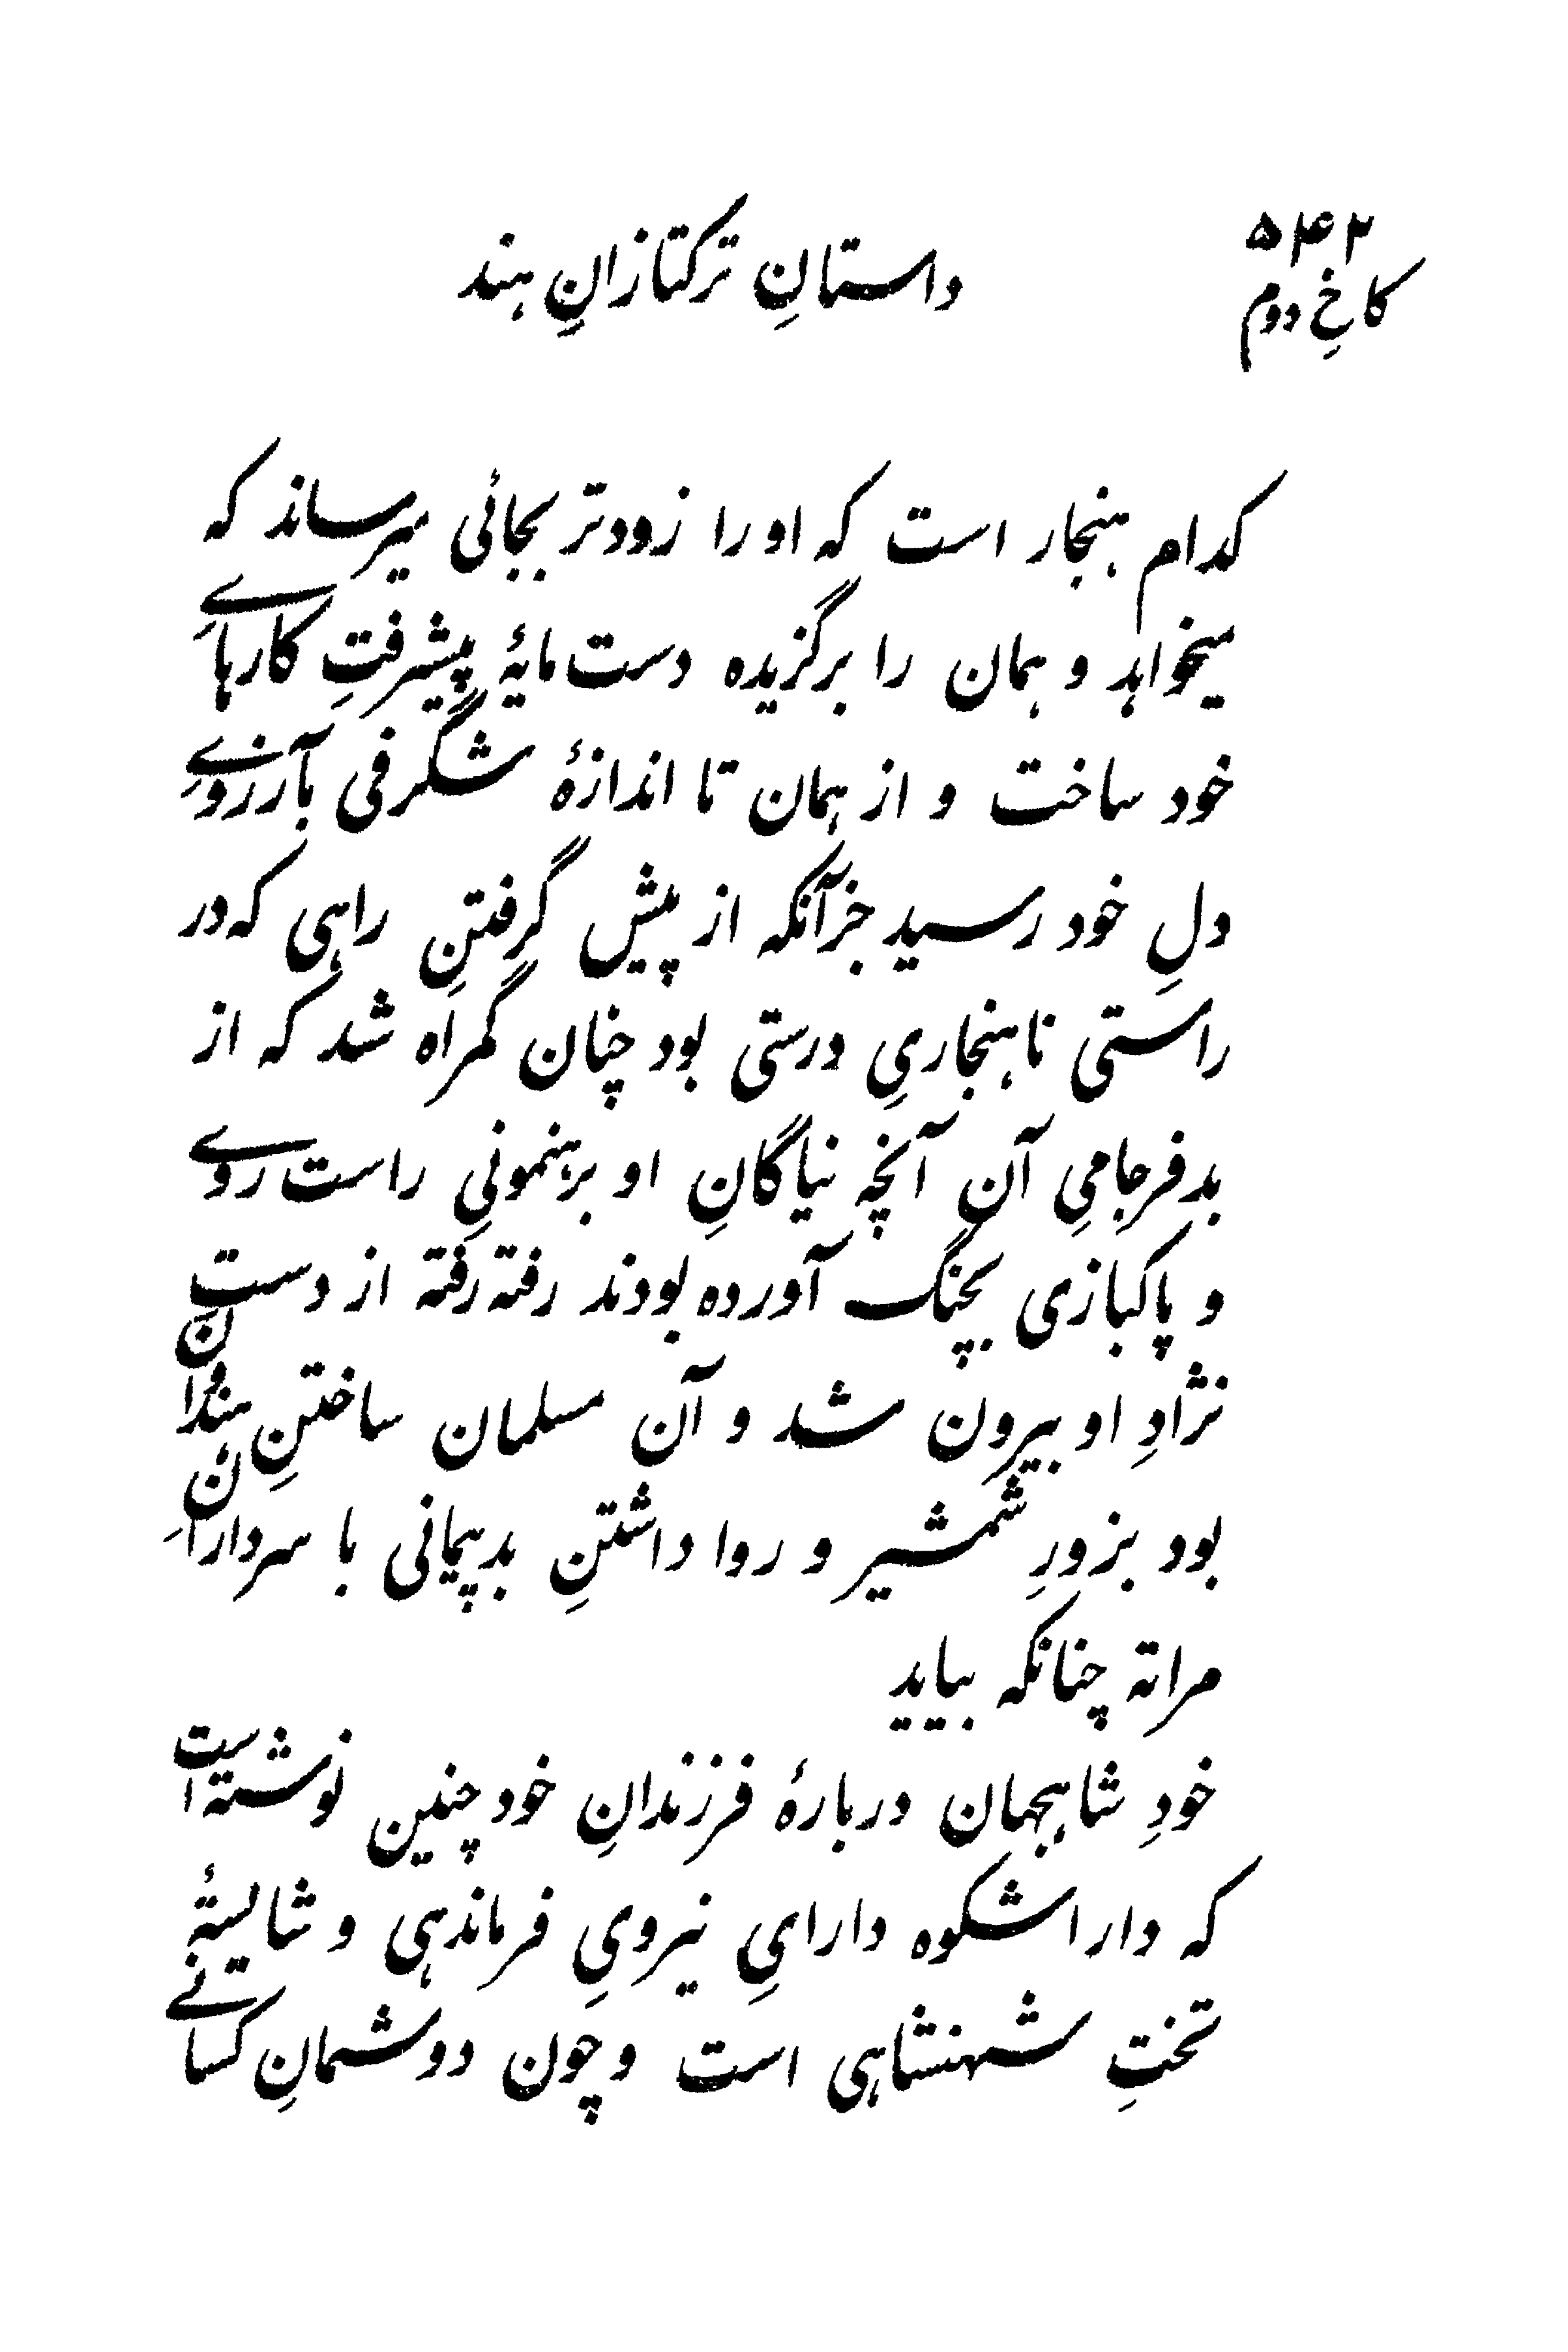 ۵۴۲
داستانِ ترکتازانِ هند
کاخِ دوم
کدام هنجار است که او را زودتر بجائی میرساند که
میخواهد و همان را برگزیده دست‌مایۀ پیشرفتِ کارهایِ
خود ساخت و از همان تا اندازۀ شگرفی بآرزویِ
دلِ خود رسید جزآنکه از پیش گرفتنِ راهی که در
راستی ناهنجاریِ درستی بود چنان گمراه شد که از
بدفرجامیِ آن آنچه نیاگانِ او برهنمونیِ راست روی
و پاکبازی بچنگ آورده بودند رفته رفته از دستِ
نژادِ او بیرون شد و آن مسلمان ساختنِ هندوان
بود بزورِ شمشیر و روا داشتنِ بدپیمانی با سردارانِ
مراته چنانکه بیاید
خودِ شاهجهان دربارۀ فرزندانِ خود چنین نوشته است
که داراشکوه دارایِ نیرویِ فرماندهی و شایستۀ
تختِ شهنشاهی است و چون دوشمانِ کسانی